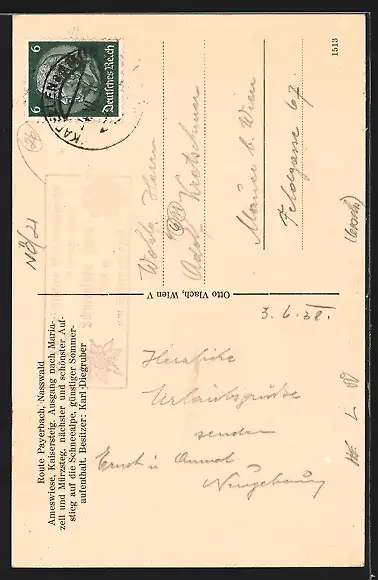 Route Payerbach, Nasswald
Ameswiese, Kaisersteig. Ausgang nach Maria-
zell und Mürzsteg, nächster und schönster Auf-
stieg auf die Schneealpe, günstiger Sommer-
aufenthalt. Besitzer: Karl Diegruber
3. 6. 38.
Herzliche
Urlaubsgrüße
senden
Ernst u.
Otto Vlach, Wien V
6
Deutsches Reich
6
Wohlg. Herrn
Adolf Kretschmer
Mauer b. Wien
Feldgasse 67
1513
NÖ/21